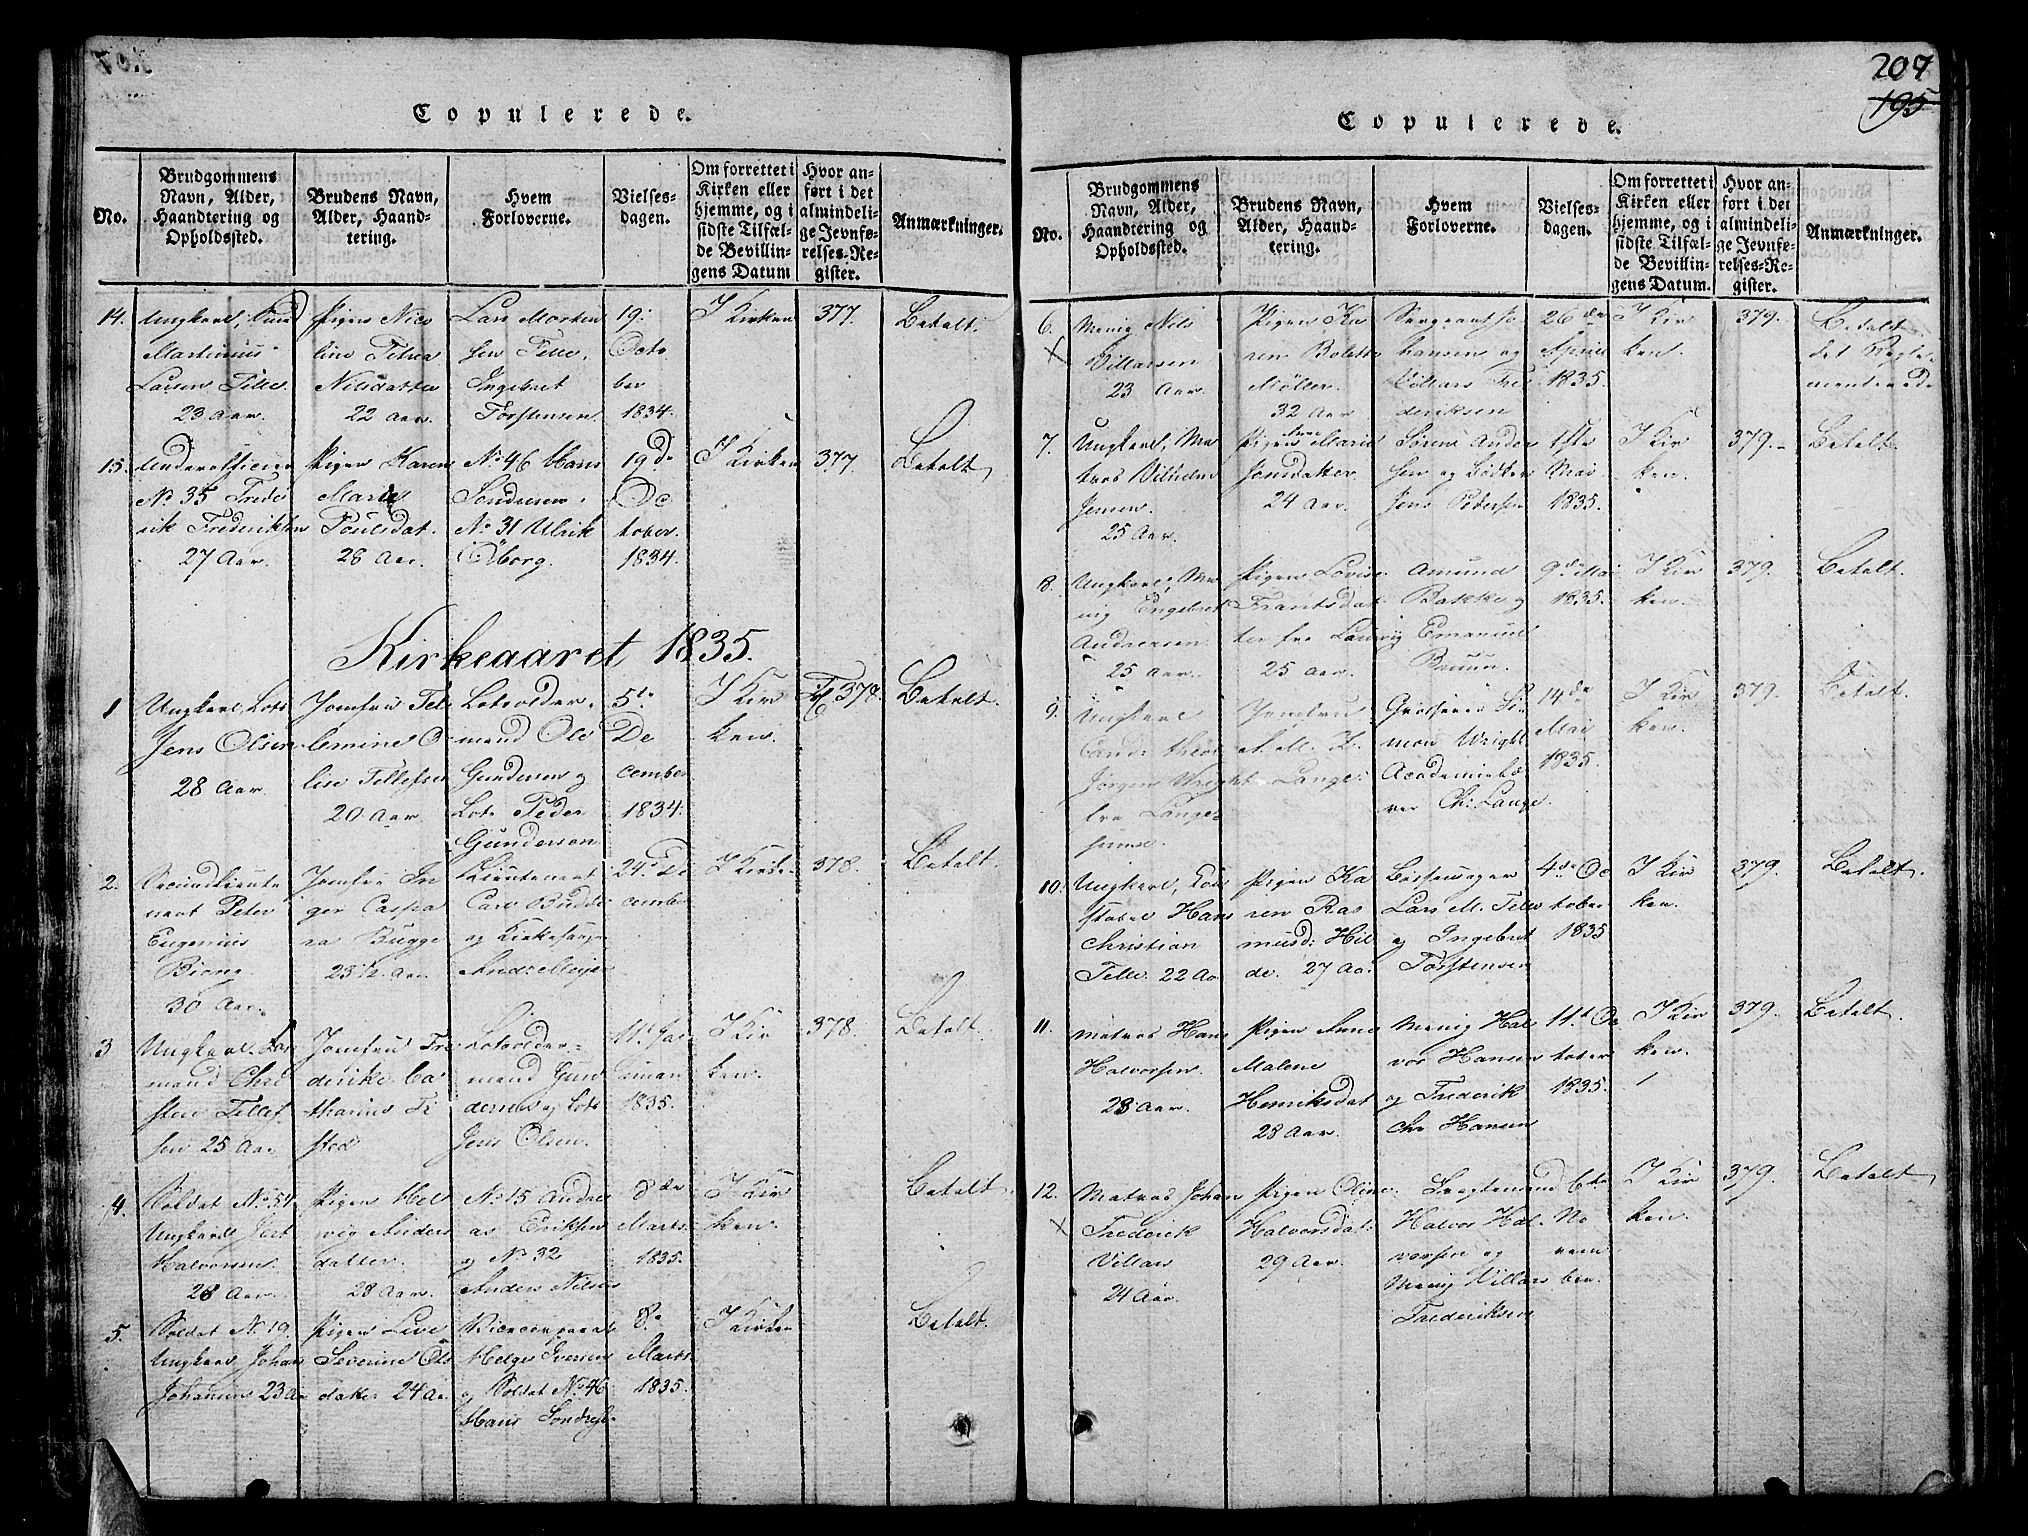 207
195
Copulerede.
No.
Brudgommens
Navn, Alder,
Haandtering og
Opholdssted.
Brudens Navn,
Alder, Haand-
tering.
Hvem
Forloverne.
Vielses-
dagen.
Om forrettet i
Kirken eller
hjemme, og i
sidste Tilfæl-
de Bevillin-
gens Datum
Hvor an-
ført i det
almindeli-
ge Jevnfø-
relses-Re-
gister.
Anmærkninger.
14.
Ungkarl,
Martinius
Larsen Telle
23 Aar.
Pigen Nico
line Petrea
Nilsdatter
22 Aar.
Lars Morten
sen Telle,
Ingebret
Torstensen
19
Octo
ber
1834.
I Kirken
377
Betalt.
15.
Underofficier
No 35 Frede
rik Frederiksen
27 Aar.
Pigen Karen
Marie
Poulsdat.
28 Aar.
No 46 Hans
Sondresen.
No 31 Ulrik
19de
Oc
tober.
1834.
I Kirken
377
Betalt
Kirkeaaret 1835.
1
Ungkarl, Lots
Jens Olsen
28 Aar.
Jomfru Tel
lemine O
lise Tellefsen
20 Aar.
Lotsolder-
mand Ole
Gundersen og
Lots Peder
Gundersen
5te
De
cember
1834.
I Kir
ken.
378.
Betalt.
2.
Secundlieute
nant Peter
Eugenius
Biong
30 Aar.
Jomfru In
ger Caspa
ra Bugge
23 1/2 Aar
Lieutenant
Carl Budde
og Kirkesanger
24 De
cember
I Kirke
378.
Betalt.
3
Ungkarl
mand Chri
sten Tellef
sen 25 Aar
Jomfru Fre
derike Ca
tharine
Lotsolder-
mand Gun
dersen og Lots
Jens Olsen.
11t Ja
nuar
1835.
I Kir
ken.
378.
Betalt.
4.
Soldat No. 54
Ungkarl
Halvorsen.
28 Aar.
Pigen Hel
vig Anders
datter.
28 Aar.
No 15 Andre
as Eriksen
og No 32
Anders Nilsen
8de
Marts
1835.
I Kir
ken.
Betalt
5.
Soldat No. 19.
Ungkarl Johan
Johansen 23 Aar
Pigen Live
Severine Ols
datter 24 Aar
Helge Iversen
og Soldat No. 46
Hans Sondres.
8de
Marts
1835.
I Kirken
Betalt.
Copulerede.
No.
Brudgommens
Navn, Alder,
Haandtering og
Opholdssted.
Brudens Navn,
Alder, Haand-
tering.
Hvem
Forloverne.
Vielses-
dagen.
Om forrettet i
Kirken eller
hjemme, og i
sidste Tilfæl-
de Bevillin-
gens Datum.
Hvor an-
ført i det
almindeli-
ge Jevnfø-
relses-Re-
gister.
Anmærkninger.
6.
Menig Nils
Villarsen
23 Aar
Pigen Ka
ren Bolette
Møller.
32 Aar
Sergeant Jo
hansen og
Villars Fre
deriksen
26de
April
1835.
I Kir
ken.
379.
Betalt
det Regle-
menterede
7.
Ungkarl, Ma
tros Vilhelm
Jensen.
25 Aar.
Pigen Anne Marie
Jensdatter
24 Aar.
Søren Ander
sen og Bødker
Jens Pedersen
1ste
Mai
1835.
I Kir
ken.
379.
Betalt.
8.
Ungkarl, Me
nig Engebret
Andersen
25 Aar.
Pigen Lovise
Frantsdat
ter fra Laurvig
25 Aar.
Amund
Bakke og
Emanuel
9de Mai
1835.
I Kir
ken.
379.
Betalt.
9.
Ungkarl
Cand: theol
Jørgen Wright
fra Lange-
Jomfru
A. M. K.
Lange.
Grosserer Si
mon Wright
Academielæ
rer Ch: Lange.
14de
Mai
1835.
I Kir
ken.
379.
Betalt.
10.
Ungkarl, Con
stabel Hans
Christian
Telle. 22 Aar
Pigen Ka
ren Ras
musd: Hil
de. 27 Aar.
Lars M. Telle
og Ingebret
Torstensen
4de Oc
tober
1835
I Kir
ken.
379.
Betalt.
11.
Matros Hans
Halvorsen.
28 Aar.
Pigen Anne
Malene
Henriksdat
28 Aar.
Menig Hal
vor Hansen
og Frederik
Chr Hansen
11t Oc
tober
1835.
I Kir
ken.
379.
Betalt.
12.
Matros Johan
Frederik
Villars
24 Aar.
Pigen Oline
Halvorsdat
29 Aar.
Halvor Hal-
vorsen og
Menig Villars
Frederiksen
6te
No
vem
ber.
I Kir
ken.
379.
Betalt